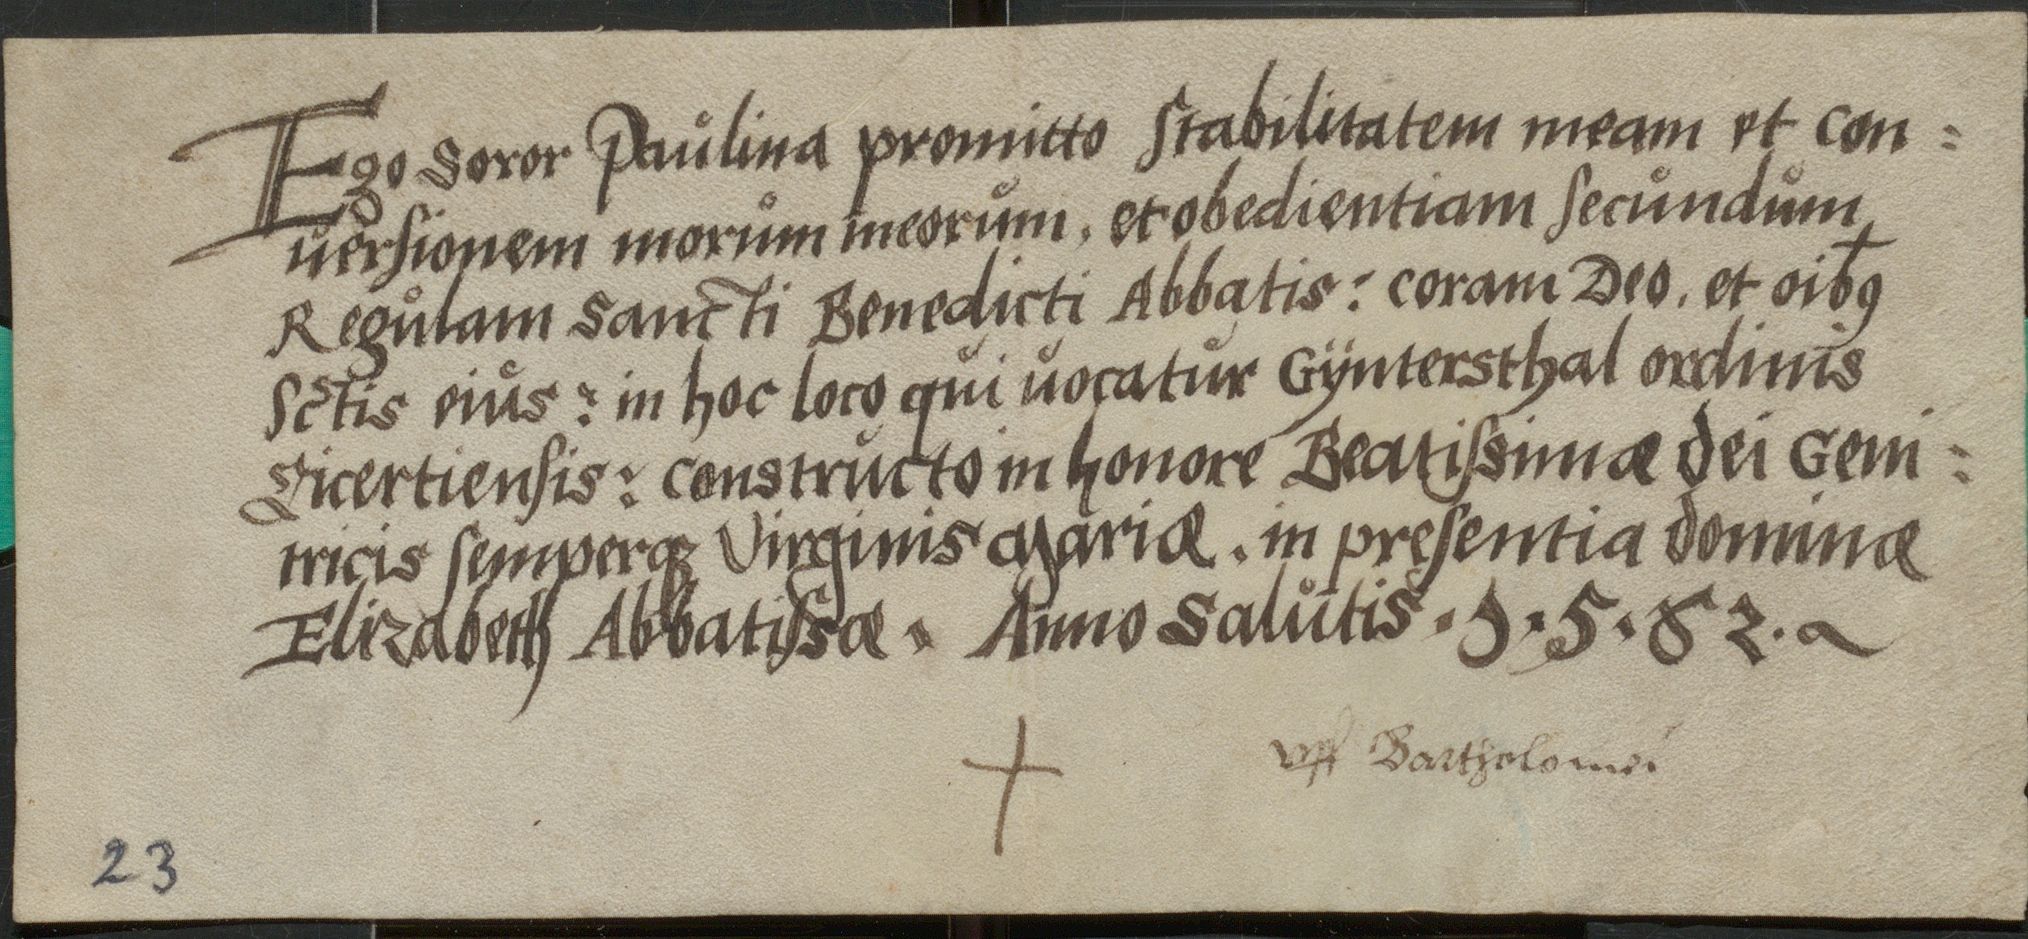 Ego Soror Paulina promitto stabilitatem meam et con =
uersionem morům meorům, et obedientiam secůndům
Regůlam Sanc̄ti Benedicti Abbatis : coram Deo . et oībꝰ
Sc̄tis eiůs : in hoc loco qůi ůocatůr Gÿntersthal ordinis
Cicertiensis : constrůcto in honore Beatissimæ dei Geni =
tricis semperqꝫ Virginis Mariæ . in presentia dominæ
Elizabeth Abbatissæ . Anno Salůtis . 1 . 5 . 82 .
vff Bartholomei
23